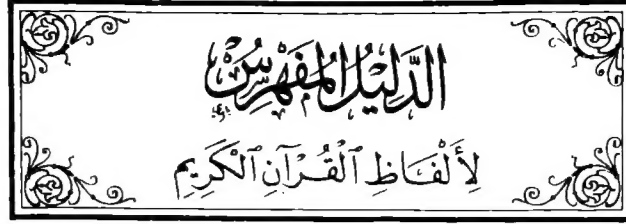 الدَّلِيلُ المُفَهْرَسُ
لِأَلْفَاظِ ٱلْقُرْآنِ ٱلْكَرِيمِ